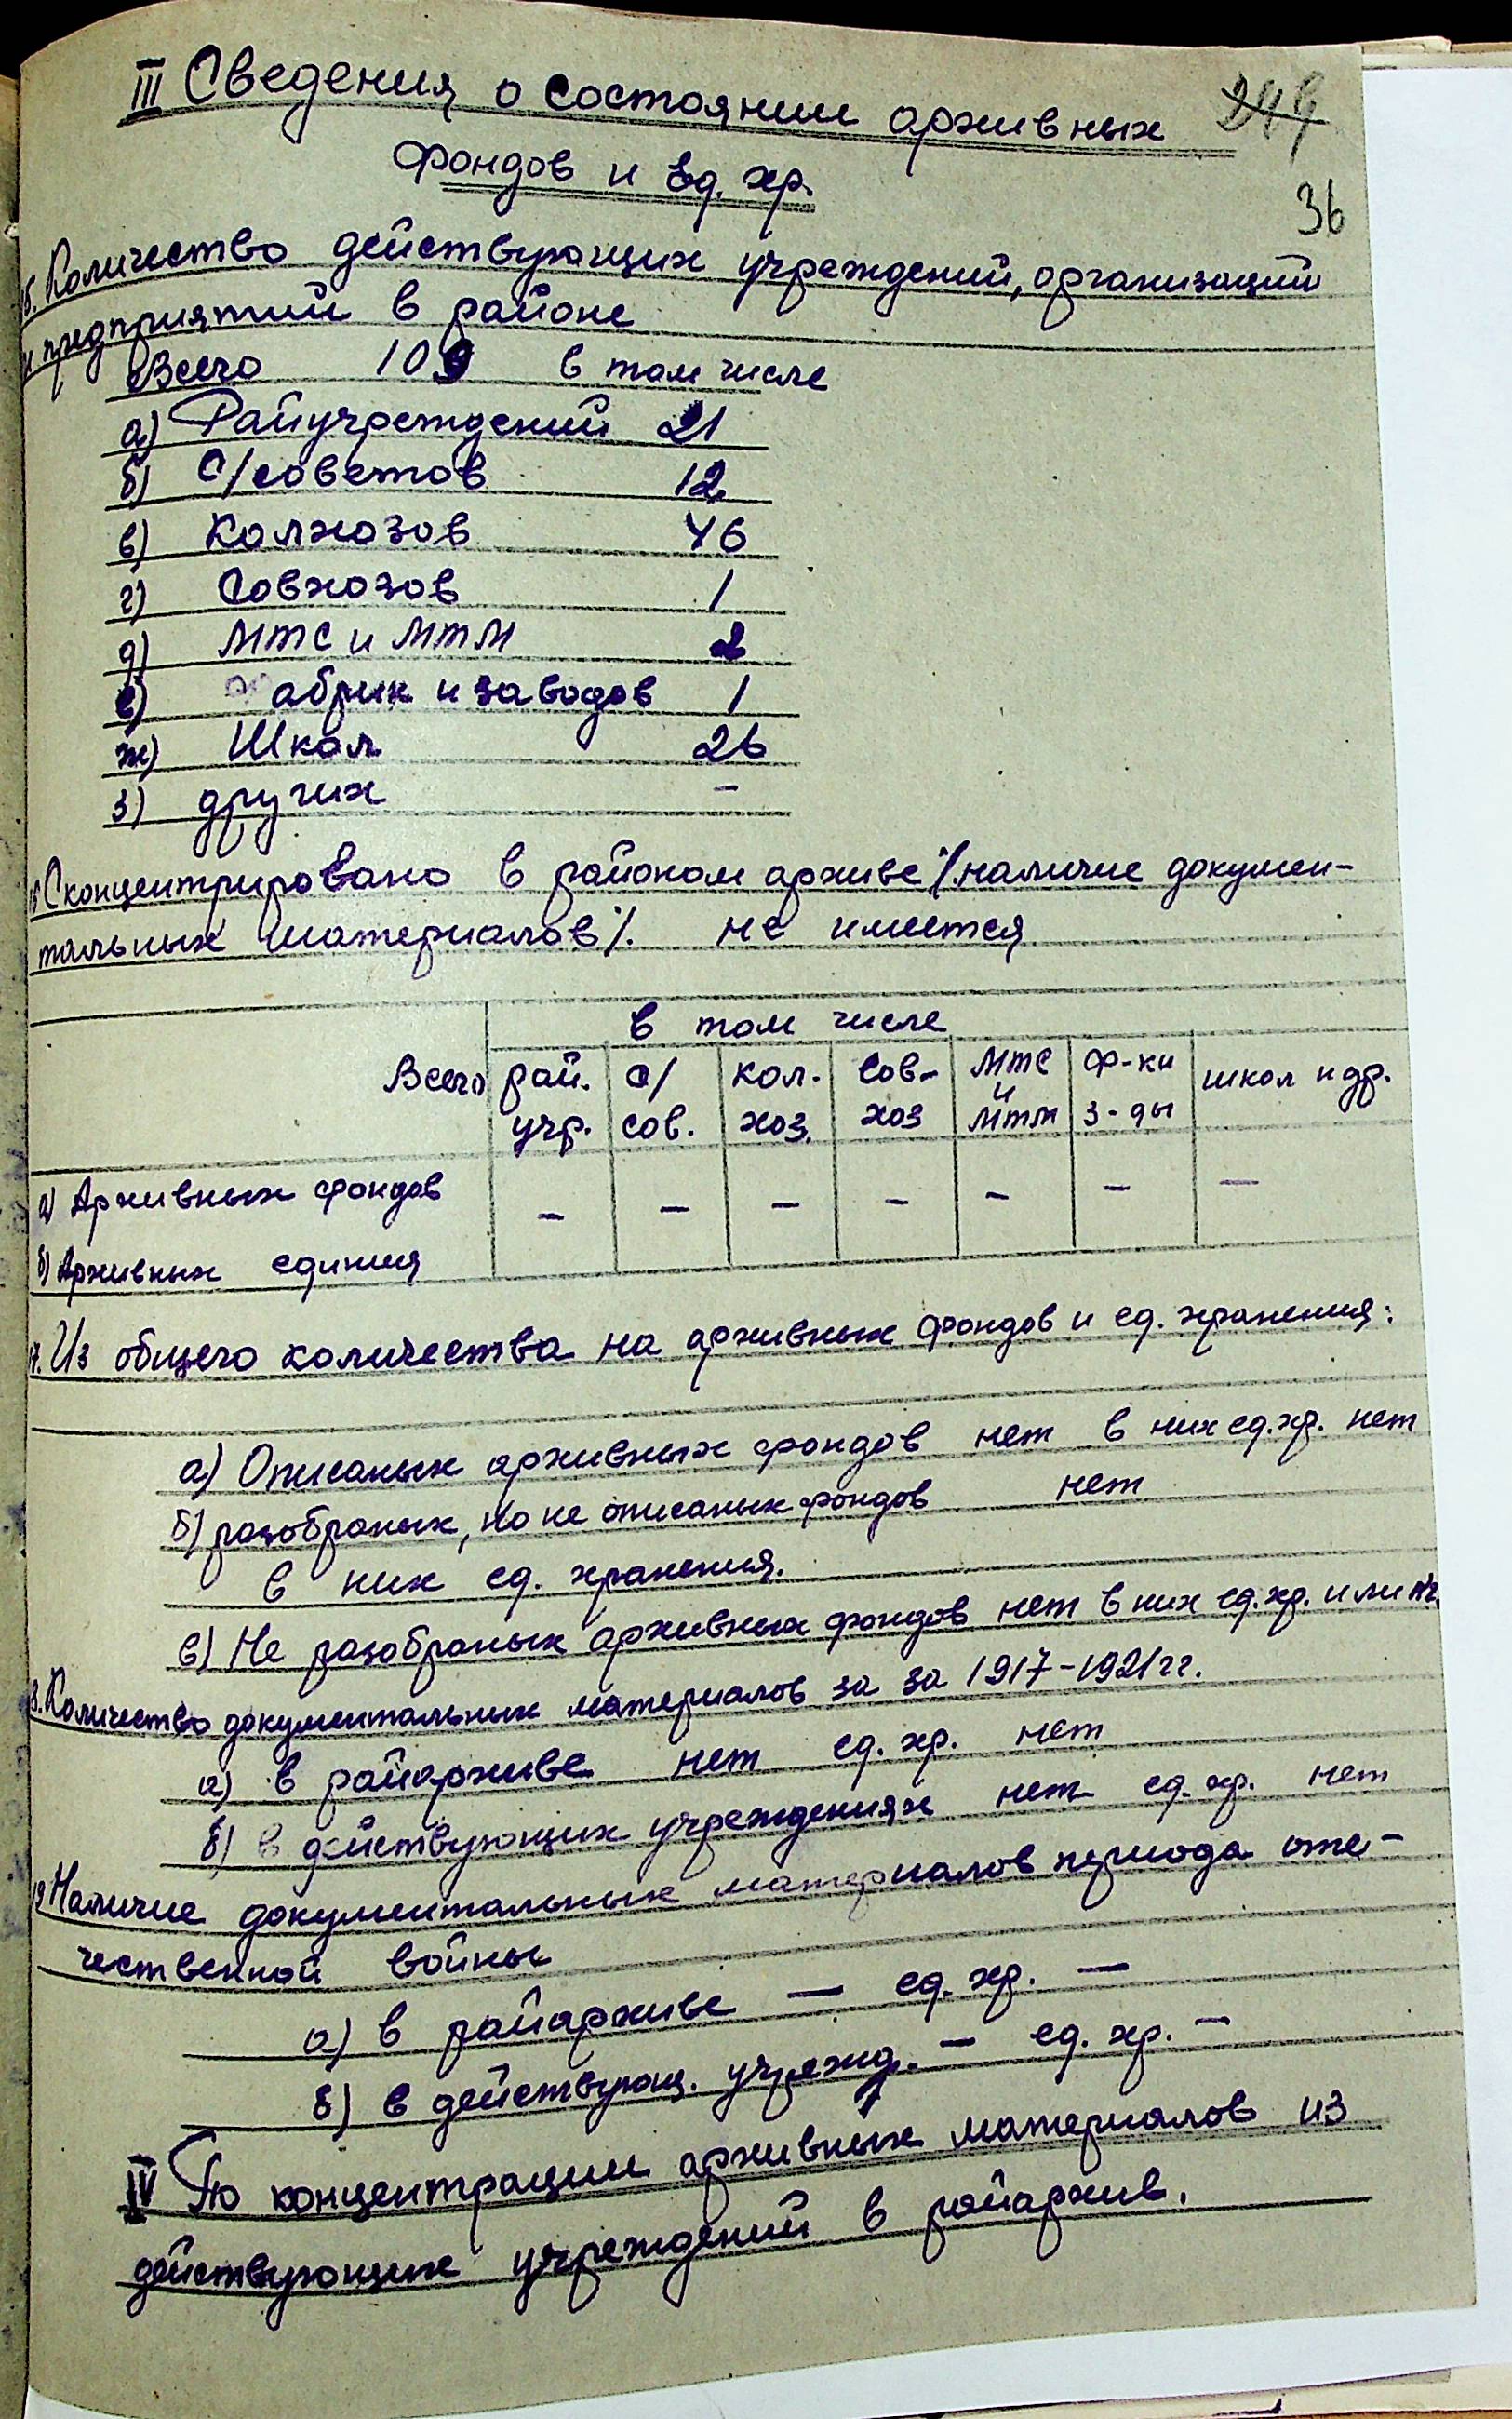 III Сведения о состоянии архивных
244
фондов и Ед. хр.
36
5. Количество действующих учреждений, организаций
и предприятий в районе
Всего 109 в том числе
а) Райучреждений 21
б) С/советов 12
в) Колхозов 46
г) Совхозов 1
д) МТС и МТМ 2
е) Фабрик и заводов 1
ж) Школ 26
з) других -
16 Сконцентрировано в районом архиве /.наличие докумен-
тальных материалов/. не имеется
в том числе
Всего рай. учр. с/сов. кол.хоз. Сов-хоз МТС и МТМ Ф-ки З-ды школ и др.
а) Архивных фондов - - - - - - -
б) Архивных единиц
17. Из общего количества на архивных фондов и ед. хранения:
а) Описаных архивных фондов нет в них ед. хр. нет
б) разобраных, но не описаных фондов нет
в них ед. хранения.
в) Не разобраных архивных фондов нет в них ед. хр. или
8. Количество документальных материалов за за 1917-1921 гг.
а) в райархиве нет ед. хр. нет
б) в действующих учреждениях нет ед. хр. нет
19 Наличие документальных материалов периода оте-
чественной войны
а) в райархиве — ед. хр. —
б) в действующ. учрежд. — ед. хр. —
IV По концентрации архивных материалов из
действующих учреждений в райархив.